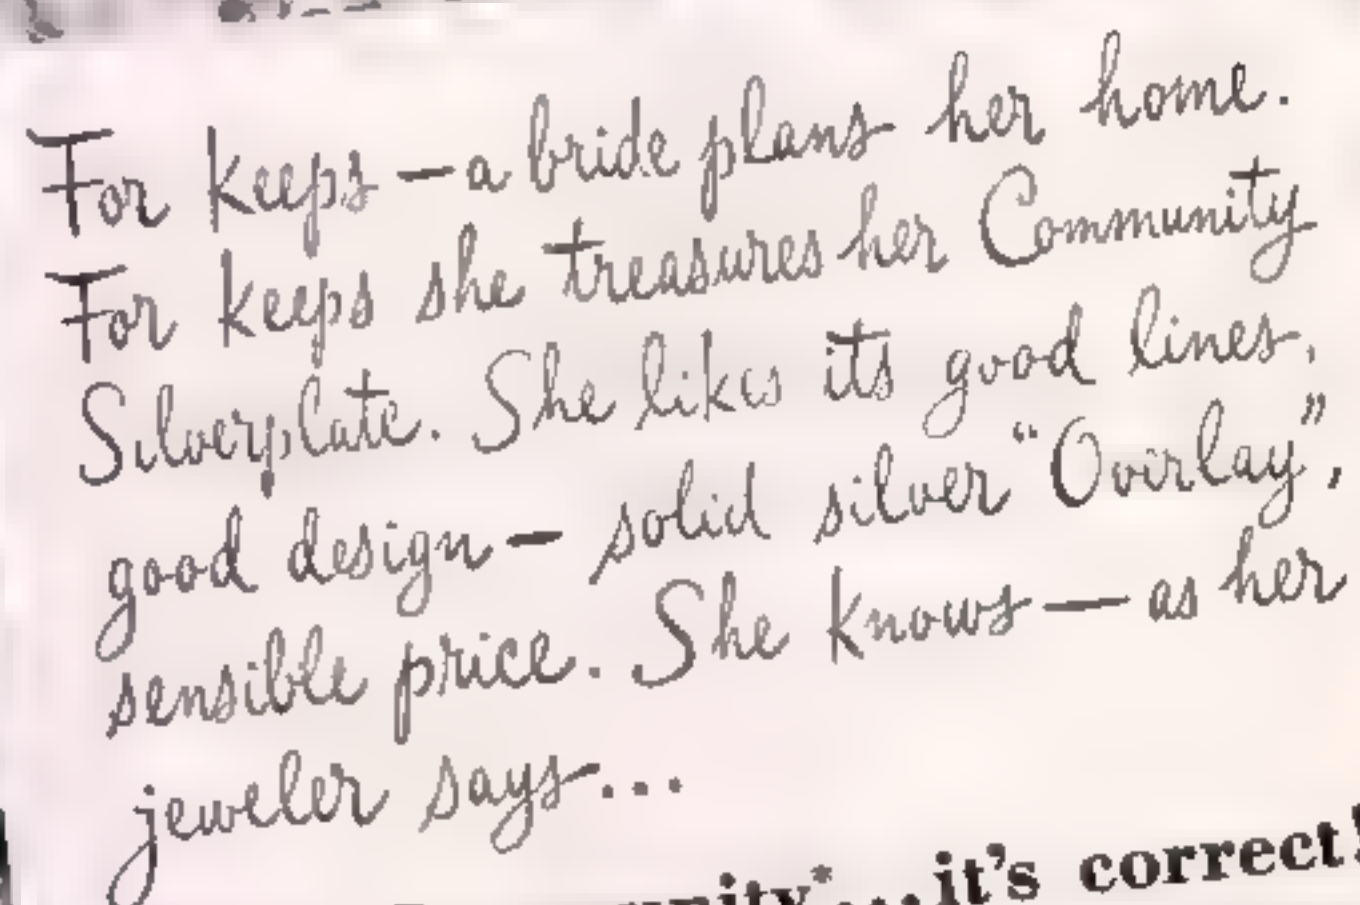 For keeps — a bride plans her home.
For keeps she treasures her Community
Silverplate. She likes its good lines,
good design — solid silver “Overlay”,
sensible price. She knows — as her
jeweler says...
...it's correct!